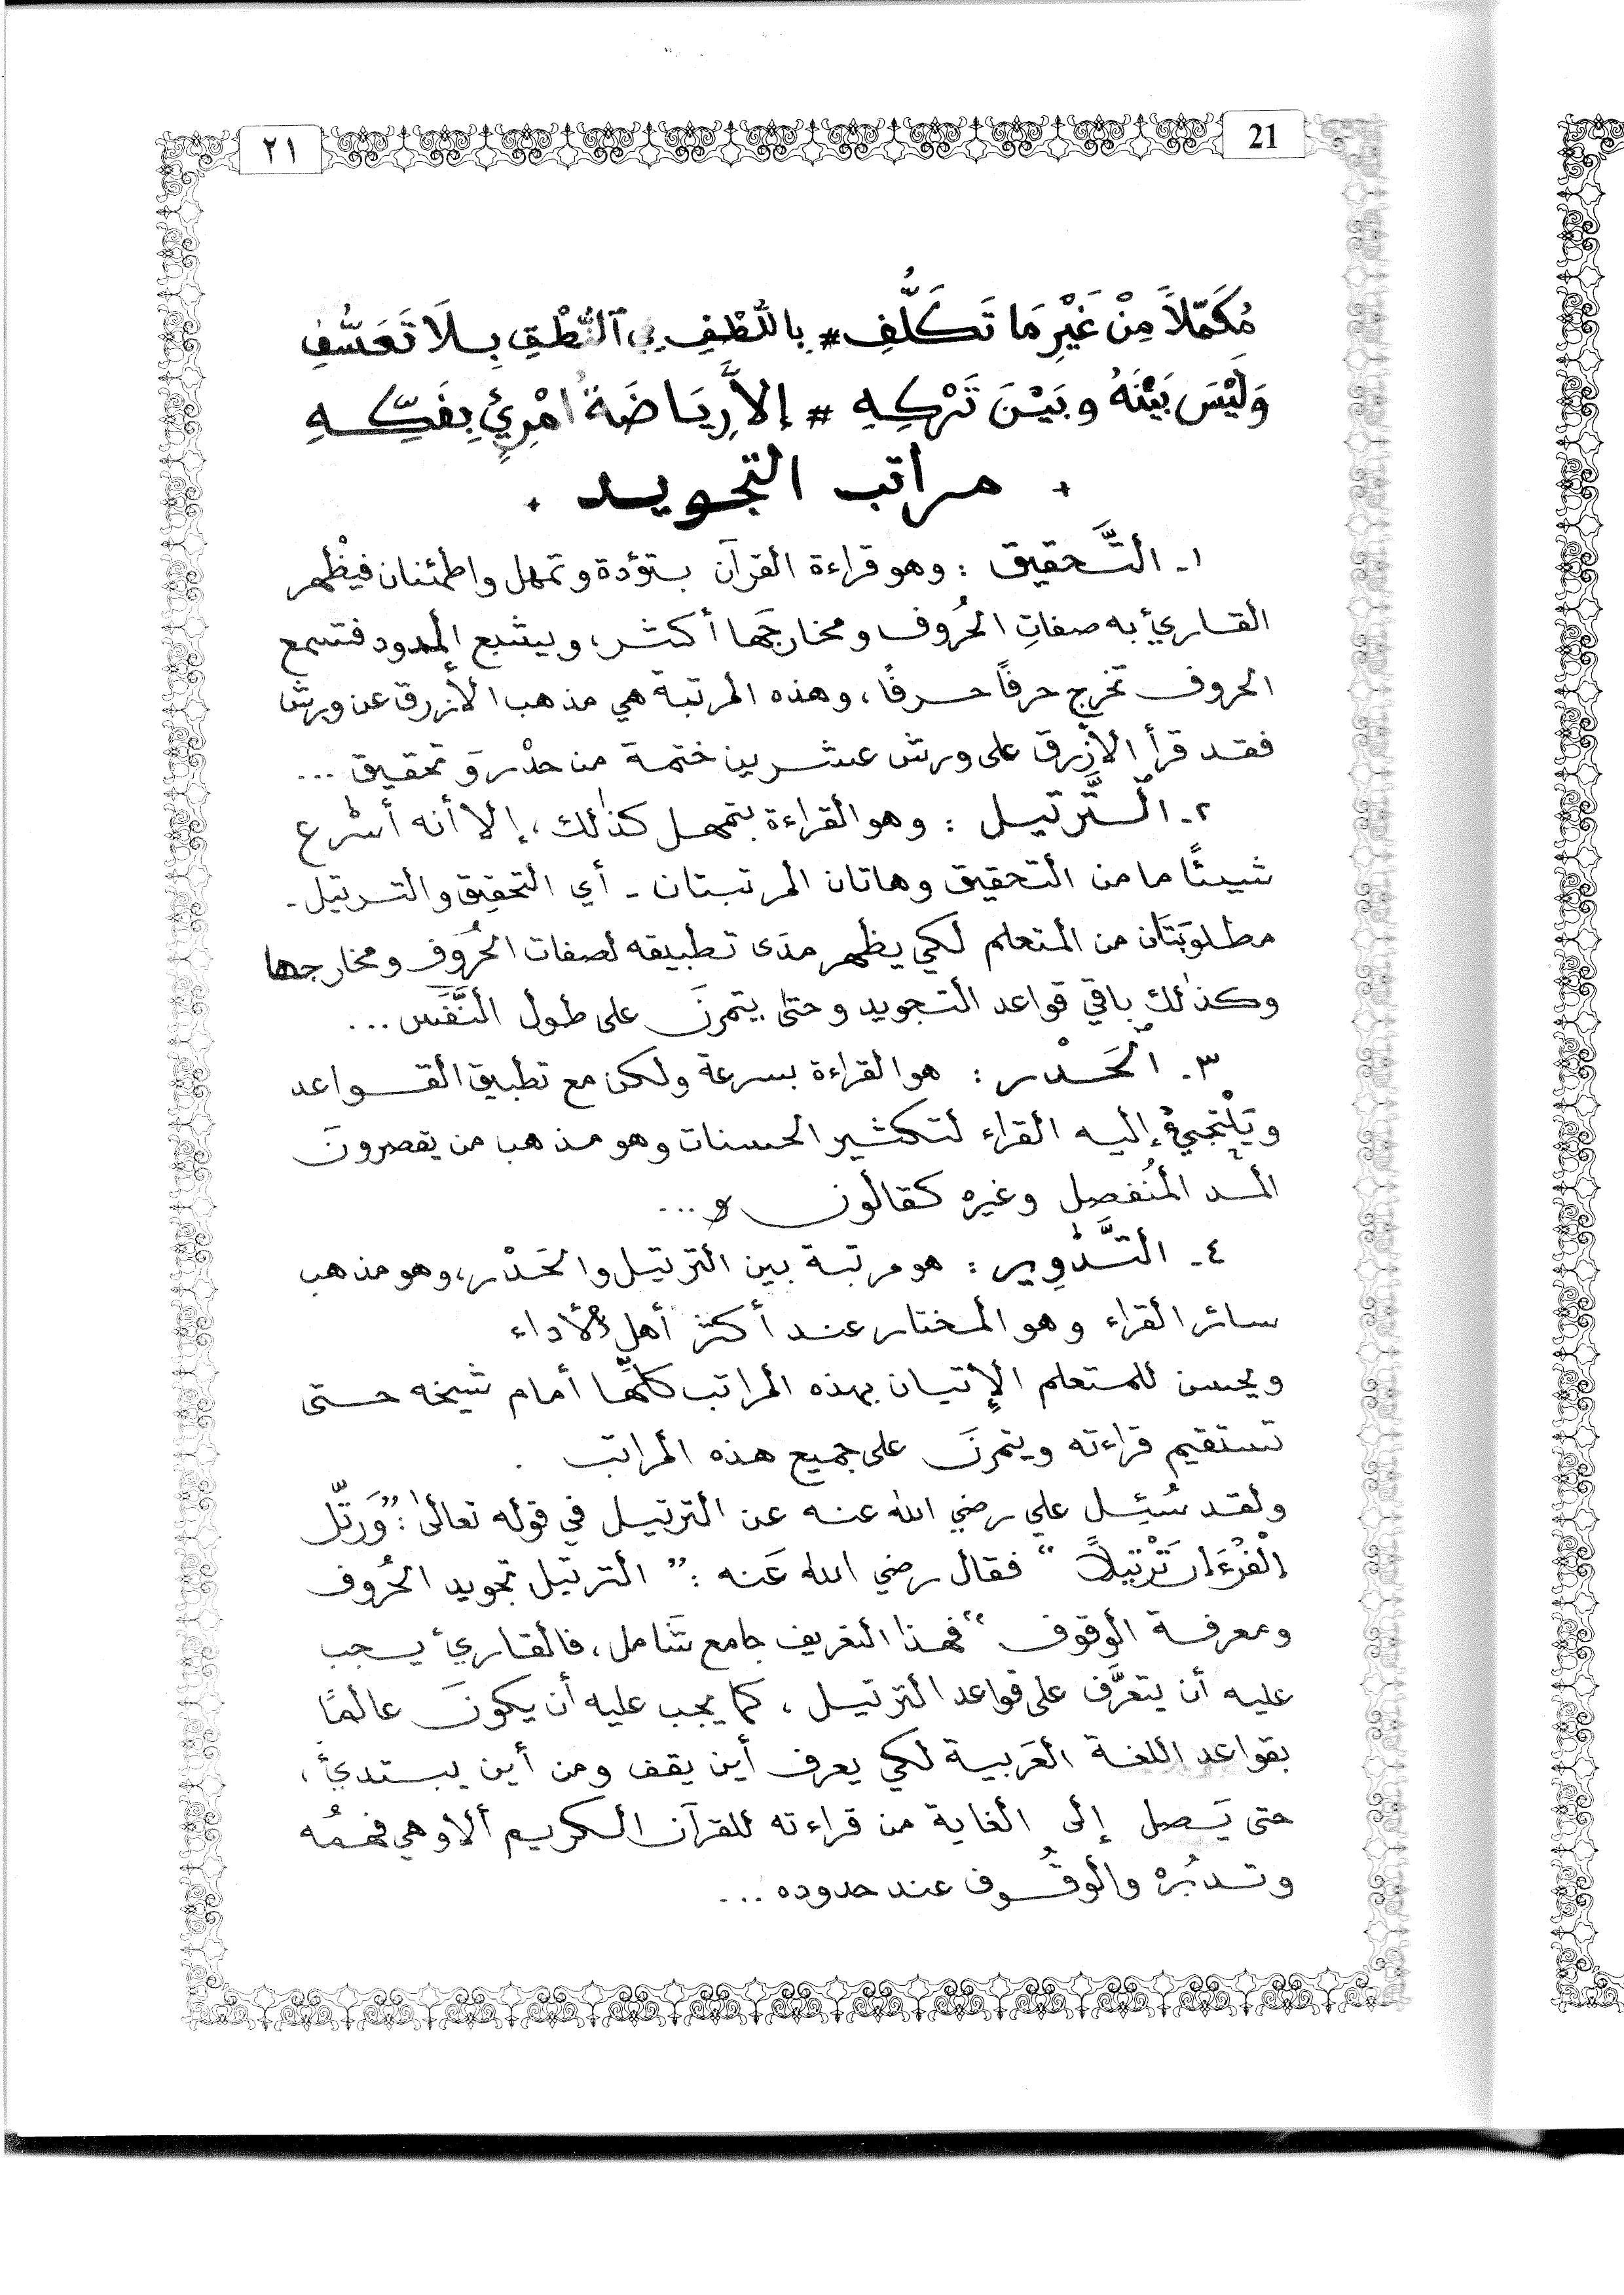 ٢١
21
مُكَمَّلاً مِنْ غَيْرِ مَا تَكَلُّفِ # بِاللُّطْفِ فِي ٱلنُّطْقِ بِلَا تَعَسُّفِ
وَلَيْسَ بَيْنَهُ وبَيْنَ تَرْكِهِ # إلاَّ رِيَاضَةُ امْرِئٍ بِفَكِّهِ
مراتب التجويد
١ـ التَّحقيق : وهو قراءة القرآن بتؤدة وتمهل واطمئنان فيظْهر
القارئ به صفاتِ الحُروف ومخارجَها أكثر، ويشبع المدود فتسمع
الحروف تخرج حرفاً حرفًا، وهذه المرتبة هي مذهب الأزرق عن ورش
فقد قرأ الأزرق على ورش عشرين ختمة من حدْر وَتحقيق ...
٢ـ التَّرتيل : وهو القراءة بتمهل كذٰلك، إلا أنه أسْرع
شيئًا ما من التحقيق وهاتان المرتبتان ـ أي التحقيق والترتيل ـ
مطلوبَتَان من المتعلم لكي يظهر مدَى تطبيقه لصفات الحُرَوف ومخارجها
وكذٰلك باقي قواعد التجويد وحتىٰ يتمرنَ على طول النَّفَس ...
٣ـ الْحَدْر : هو القراءة بسرعة ولكن مع تطبيق القواعد
ويَلْتجئُ إليه القراء لتكثير الحسنات وهو مذهب من يقصرونَ
المد المُنفصل وغيره كقالون و ...
٤ـ التَّدْوِير : هو مرتبة بين الترتيل والحَدْر، وهو مذهب
سائر القراء وهو المختار عند أكثر أهل الأداء
ويحسن للمتعلم الإتيان بهذه المراتب كلِّها أمام شيخه حتى
تستقيم قراءته ويتمرنَ على جميع هذه المراتب .
ولقد سُئِل علي رضي الله عنه عن الترتيل في قوله تعالىٰ : ”وَرَتِّل
اِلْقُرْءَانَ تَرْتِيلاً“ فقال رضي الله عَنه : ” الترتيل تجويد الحُروف
ومعرفة الوقوف “ فهذا التعريف جامع شَامل، فالقارئ يجب
عليه أن يتعرَّف على قواعد الترتيل، كما يجب عليه أن يكونَ عالمًا
بقواعد اللغة العَربية لكي يعرف أين يقف ومن أين يبتدئ،
حتى يَصل إلى الغاية من قراءته للقرآن الكريم ألا وهي فهمُه
وتدبُرهْ والوقُوف عند حدوده ...